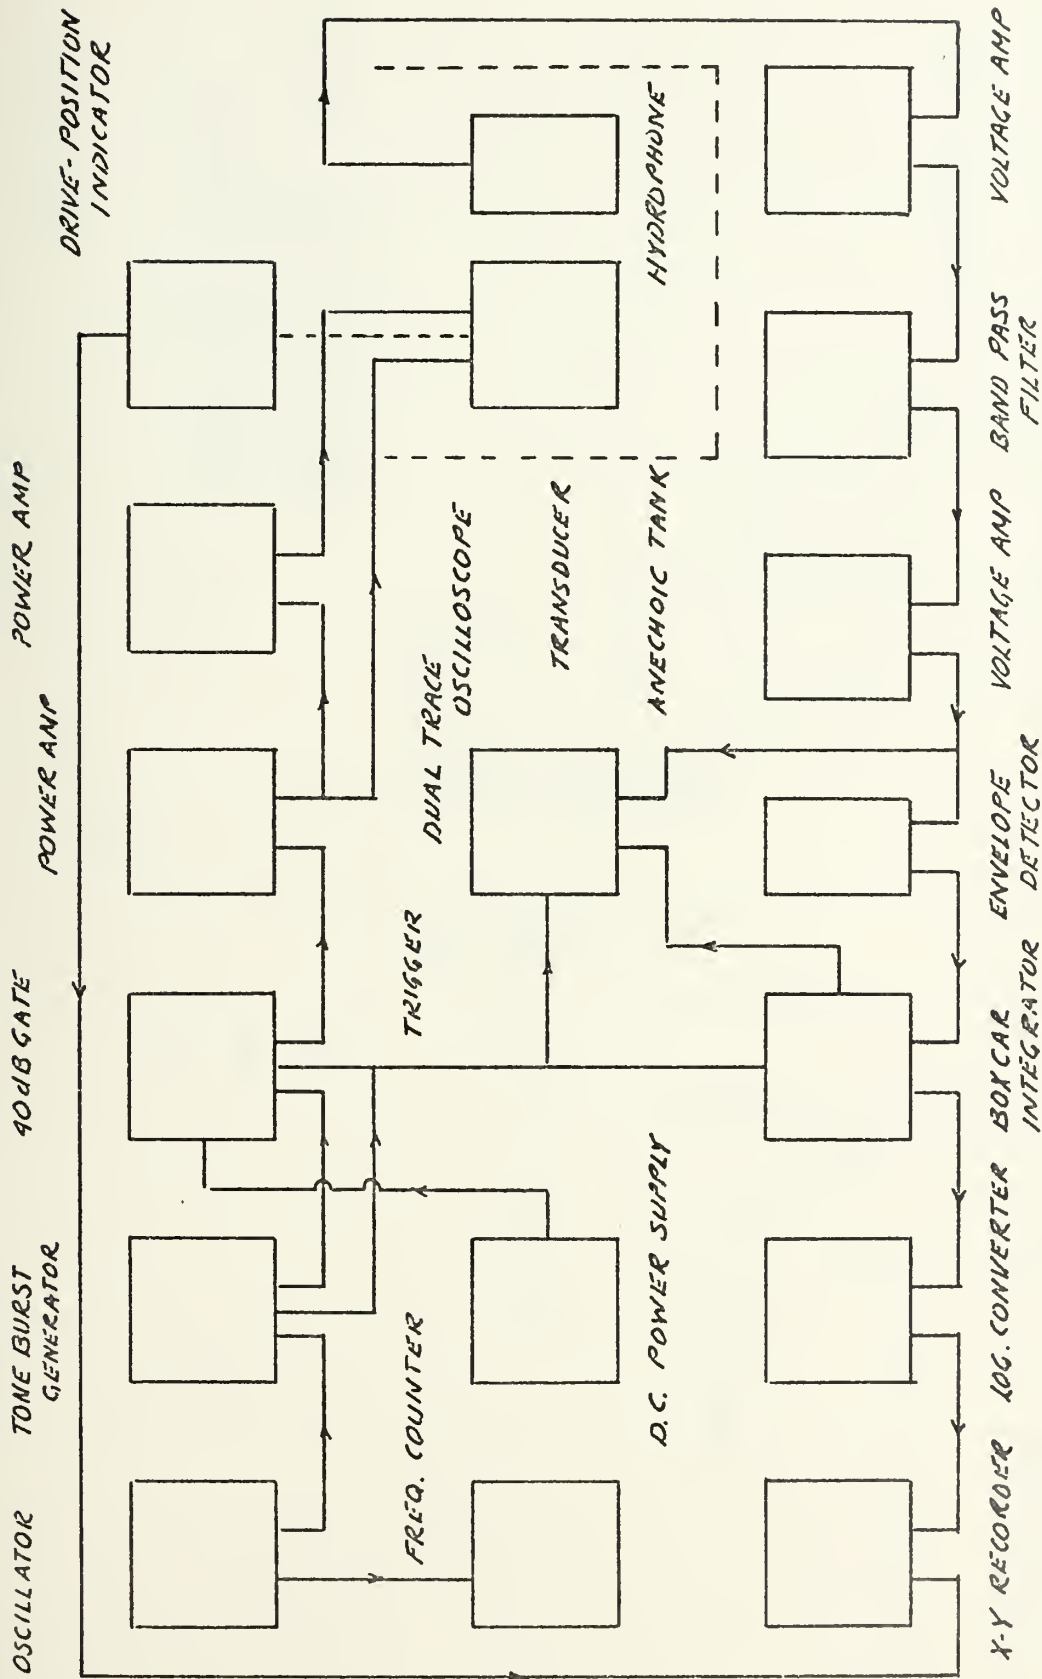 OSCILLATOR
TONE BURST
GENERATOR
40 dB GATE
POWER AMP
POWER AMP
DRIVE-POSITION
INDICATOR
FREQ. COUNTER
TRIGGER
DUAL TRACE
OSCILLOSCOPE
D.C. POWER SUPPLY
TRANSDUCER
HYDROPHONE
ANECHOIC TANK
X-Y RECORDER
LOG. CONVERTER
BOXCAR
INTEGRATOR
ENVELOPE
DETECTOR
VOLTAGE AMP
BAND PASS
FILTER
VOLTAGE AMP